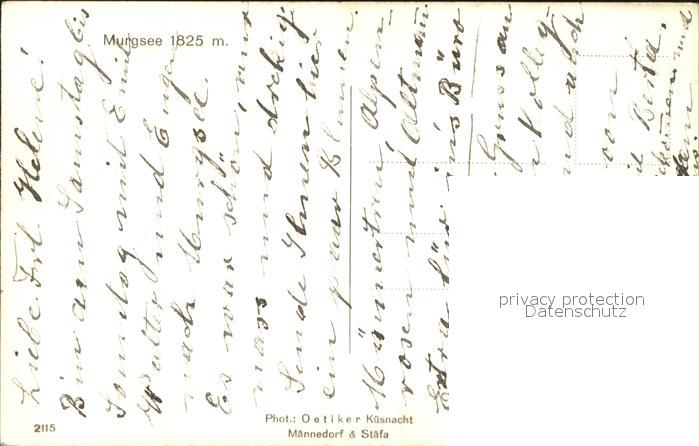 Murgsee 1825 m.
Liebe Frl. Helene!
Bin am Samstag bis
Sonntag mit Emil
Walter und Enger
nach Murgsee.
Es war schön, nur
nass und dreckig.
Sende Ihnen hier
ein paar Blumen.
Männertreu, Alpen-
rosen und Altmann
Extra für ins Büro
Gruss an
Kolleg
und auch
von
Berta.
Phot.: Oetiker Küsnacht
Männedorf & Stäfa
2115
privacy protection
Datenschutz